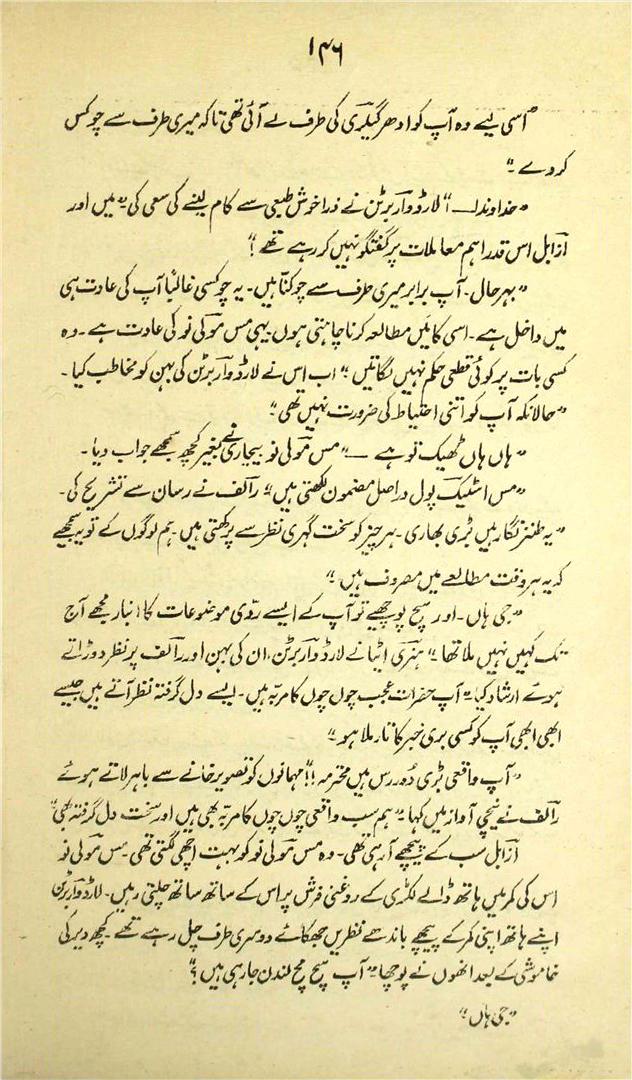 ۱۴۶
"اسی لیے وہ آپ کو ادھر گیلری کی طرف لے آئی تھی تاکہ میری طرف سے چوکس
کر دے۔"
"خداوندا—" لارڈ واربرٹن نے ذرا خوش طبعی سے کام لینے کی سعی کی "میں اور
ازابل اس قدر اہم معاملات پر گفتگو نہیں کر رہے تھے!"
"بہرحال۔ آپ برابر میری طرف سے چوکنا ہیں۔ یہ چوکسی غالباً آپ کی عادت ہی
میں داخل ہے۔ اسی کا میں مطالعہ کرنا چاہتی ہوں۔ یہی مس مولی نو کی عادت ہے۔ وہ
کسی بات پر کوئی قطعی حکم نہیں لگاتیں۔" اب اس نے لارڈ واربرٹن کی بہن کو مخاطب کیا۔
"حالانکہ آپ کو اتنی احتیاط کی ضرورت نہیں تھی۔"
"ہاں ہاں ٹھیک تو ہے —" مس مولی نو بیچاری نے بغیر کچھ سمجھے جواب دیا۔
"مس اسٹیک پول دراصل مضمون لکھتی ہیں" رالف نے رسان سے تشریح کی۔
"یہ طنز نگار ہیں بڑی بھاری۔ ہر چیز کو سخت گہری نظر سے پرکھتی ہیں۔ ہم لوگوں کے تو یہ سمجھیے
کہ یہ ہر وقت مطالعے میں مصروف ہیں۔"
"جی ہاں۔ اور سچ پوچھیے تو آپ کے ایسے ردّی موضوعات کا انبار مجھے آج
تک کہیں نہیں ملا تھا۔" ہنری اٹیا نے لارڈ واربرٹن، ان کی بہن اور رالف پر نظر دوڑاتے
ہوئے ارشاد کیا۔ "آپ حضرات عجب چوں چوں کا مربہ ہیں۔ ایسے دل گرفتہ نظر آتے ہیں جیسے
ابھی ابھی آپ کو کسی بری خبر کا تار ملا ہو۔"
"آپ واقعی بڑی دُور رس ہیں محترمہ!!" مہمانوں کو تصویر خانے سے باہر لاتے ہوئے
رالف نے نیچی آواز میں کہا۔ "ہم سب واقعی چوں چوں کا مربہ بھی ہیں اور سخت دل گرفتہ بھی"
ازابل سب کے پیچھے آ رہی تھی۔ وہ مس مولی نو کو بہت اچھی لگتی تھی۔ مس مولی نو
اس کی کمر میں ہاتھ ڈالے لکڑی کے روغنی فرش پر اس کے ساتھ ساتھ چلتی رہیں۔ لارڈ واربرٹن
اپنے ہاتھ اپنی کمر کے پیچھے باندھے نظریں جھکائے دوسری طرف چل رہے تھے۔ کچھ دیر کی
خاموشی کے بعد انھوں نے پوچھا۔ "آپ سچ مچ لندن جا رہی ہیں؟"
"جی ہاں۔"